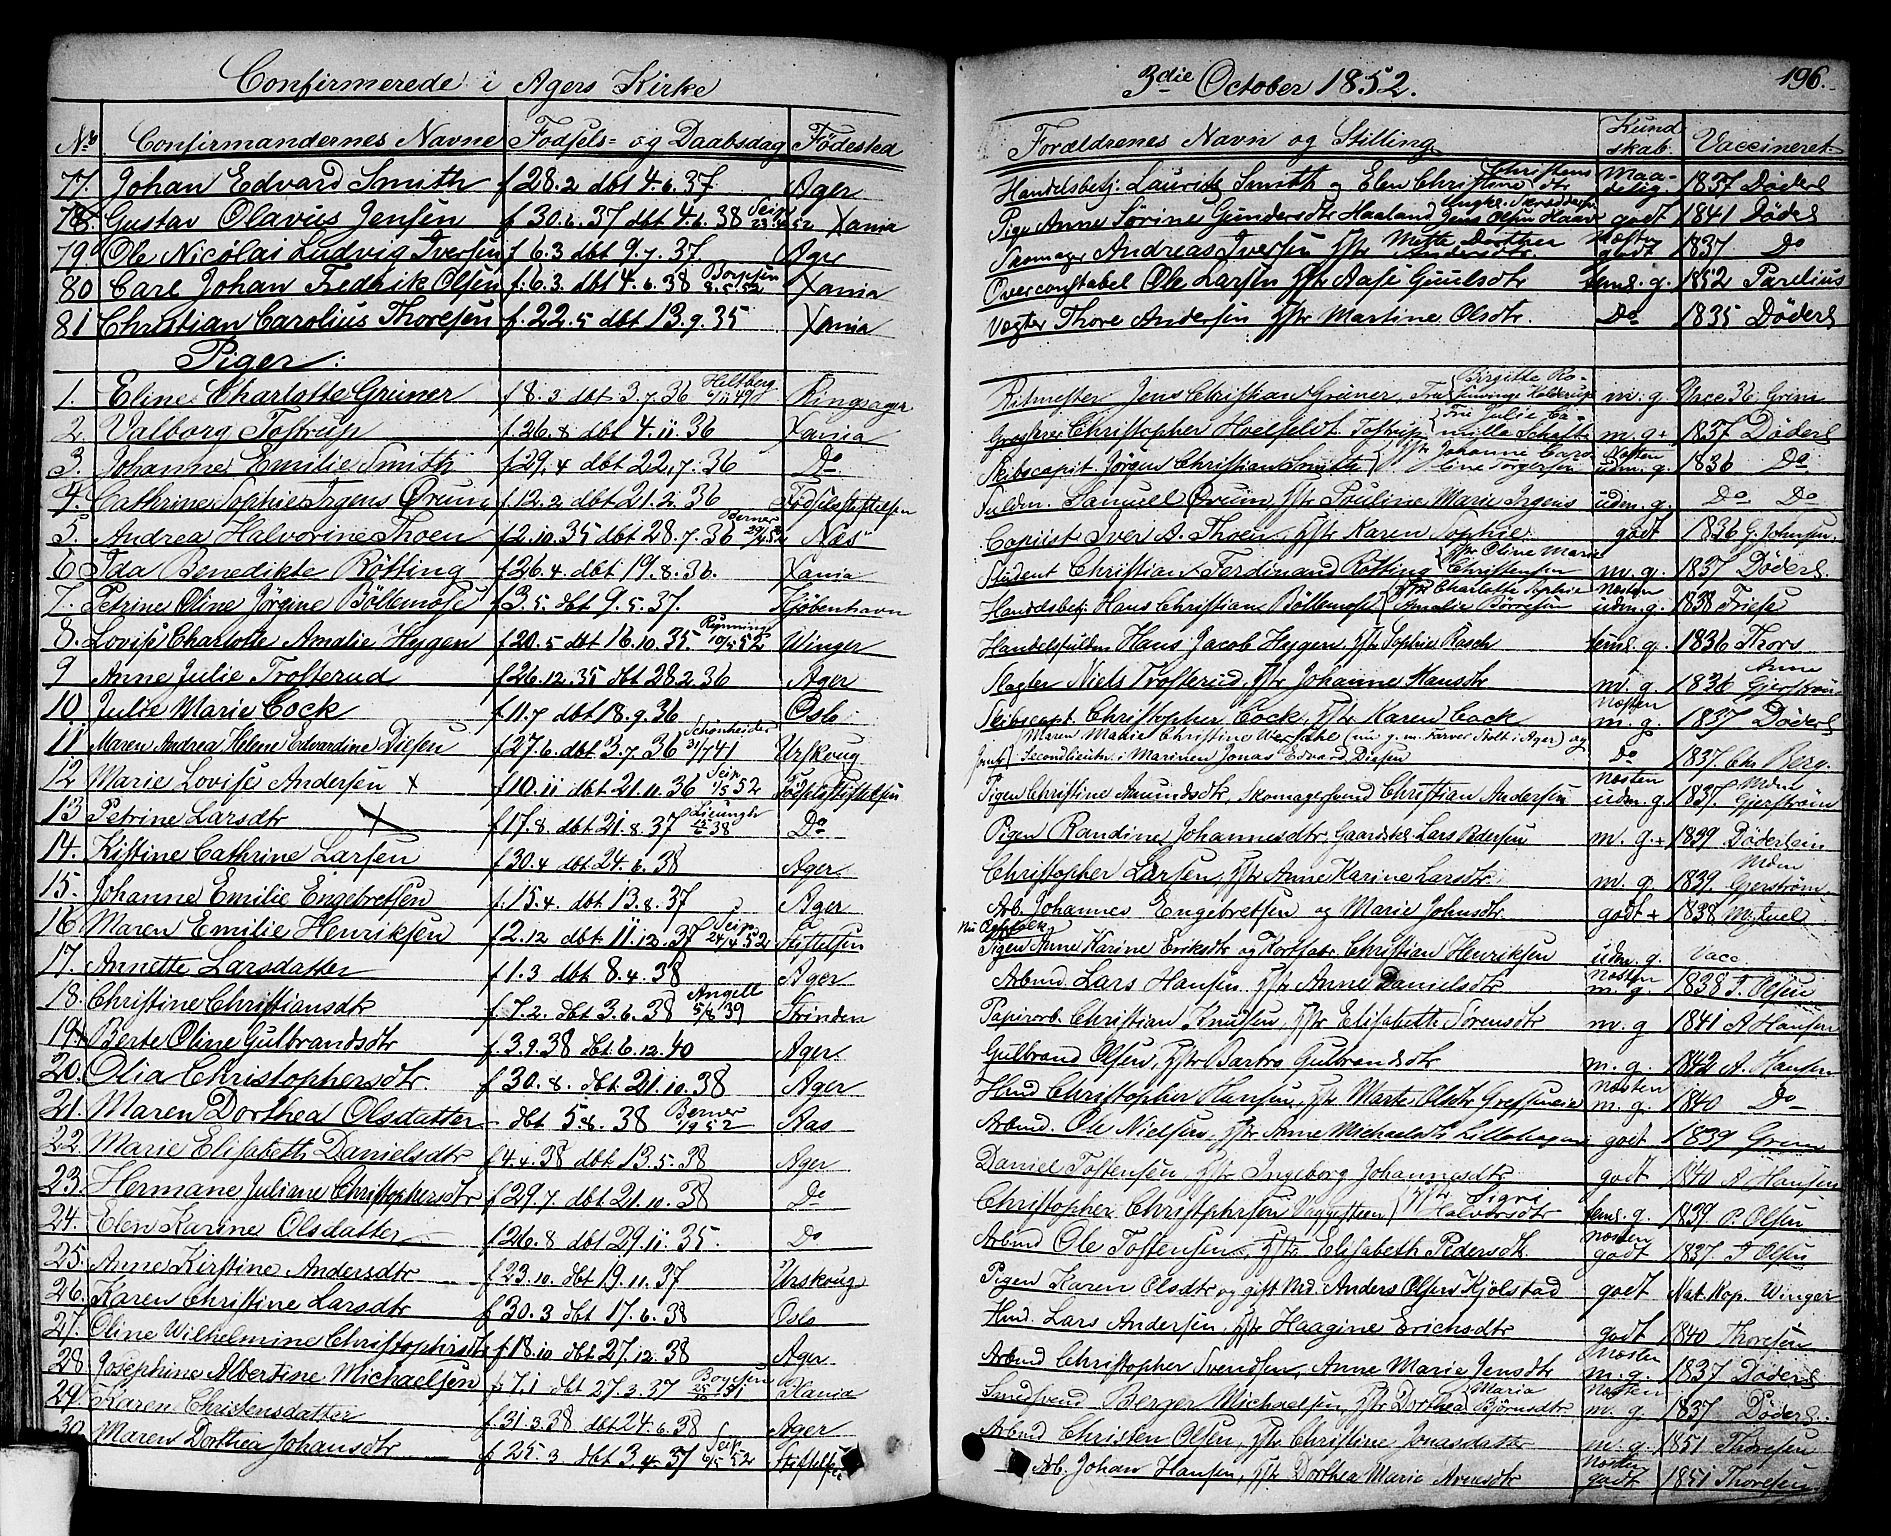 Confirmerede i Agers Kirke
No Confirmandernes Navne Fodsels- og Daabsdag Fødested
77. Johan Edvard Smith f 28.2 dbt 4.6.37. Ager
78. Gustav Olavus Jensen f 30.6.37 dbt 4.6.38 Seip Xania
79. Ole Nicolai Ludvig Iversen f 6.3 dbt 9.7.37. Ager
80 Carl Johan Fredrik Olsen f. 6.3 dbt 4.6.38 8.5.52 Xania
81 Christian Carolius Thoresen f. 22.5 dbt 13.9.35 Xania
Piger:
1. Eline Charlotte Grüner f 8.3 dbt 3.7.36 Heltberg Ringsager
2. Valborg Tostrup f. 26.8 dbt 4.11.36 Xania
3. Johanne Emilie Smith f 29.4 dbt 22.7.36 Do
4. Cathrine Sophie Irgens Ørum f. 12.2 dbt 21.2.36 Fødselsstiftelsen
5. Andrea Halvorine Thoen f 2.10.35 dbt 28.7.36 Berner Næs
6 Ida Benedikte Rötting f 26.4 dbt 19.8.36. Xania
7. Petrine Oline Jörgine Böltemose f 3.5. dbt 9.5.37. Kjöbenhavn
8. Lovise Charlotte Amalie Hygen f 20.5 dbt 16.10.35. 10/5 52 Winger
9 Anne Julie Trosterud f 26.12.35 dbt 28.2.36 Ager
10 Julie Marie Cock f 11.7 dbt 18.9.36 Oslo
11 Maren Andrea Helene Edvardine Diesen f 27.6. dbt 3.7.36 Schönheider 31/7 41 Urskoug
12 Marie Lovise Andersen x f 10.11 dbt 21.11.36 Seip 1/5 52 Födselsstiftelsen
13 Petrine Larsdtr x f 17.8 dbt 21.8.37 Do
14. Kistine Cathrine Larsen f 30.4 dbt 24.6.38 Ager.
15. Johanne Emilie Engebretsen f. 15.4. dbt 13.8.37 Ager
16 Maren Emilie Henriksen f 2.12 dbt 11.12.37 Seip 24/4 52 Stiftelsen
17. Annette Larsdatter f 1.3 dbt 8.4.38 Ager
18. Christine Christiansdtr f 7.2. dbt 3.6.38 Angell 5/8 39 Strinden
19 Berte Oline Gulbrandsdtr f. 3.9.38 dbt 6.12.40 Ager.
20. Olia Christophersdtr. f 30.8. dbt 21.10.38 Ager
21. Maren Dorthea Olsdatter dbt 5.8.38 Berner 1/9 52 Aas
22. Marie Elisabeth Danielsdtr f 4.4.38 dbt 13.5.38 Ager
23. Hermane Juliane Christophersdtr f 29.7 dbt 21.10.38 Do
24. Elen Karine Olsdatter f 26.8 dbt 29.11.35. Do
25. Anne Kirstine Andersdtr f 23.10. dbt 19.11.37 Urskoug
26. Karen Christine Larsdtr f 30.3 dbt 17.6.38 Oslo
27. Oline Wilhelmine Christophersdtr f 18.10 dbt 27.12.38 Ager
28 Josephine Albertine Michaelsen f. 7.1 dbt 27.3.37 Xania
29. Karen Christensdatter f. 31.3.38 dbt 24.6.38 Ager
30. Maren Dorthea Johansdtr f 25.3 dbt 3.4.37 Seip 6/5 52 Stiftelsen
3die October 1852. 196.
Forældrenes Navn og Stilling Kundskab. Vaccineret
Handelsbetj: Lauritz Smith og Elen Christine Christensdtr Maadelig. 1837 Döderl
Pige Anne Sörine Gundersdtr Haaland godt 1841 Döderl
Skomager Andreas Iversen Hstr Mette Dorthea Andersdtr. Næsten godt. 1837 Do
Overconstabel Ole Larsen Hstr Aase Guulsdtr temml. g. 1852 Parelius
Vegter Thore Andersen Hstr Martine Olsdtr. Do 1835 Döderl
Ritmester Jens Christian Grüner, Fru Birgitte Holderup m. g Vacc 36 Grini
Christopher Hoelfeldt Tostrup Fru Julie Camilla m. g + 1837 Döderl
Skibscapit. Jörgen Christian Smith Hstr Johanne Caroline Torgersen Næsten udm. g. 1836 Do
Fuldm. Samuel Ørum, Hstr Pouline Marie Irgens udm. g. Do Do
Copiist Iver A. Thoen, Hstr Karen Sophie. godt 1836 G. Johnsen.
Student Christian Ferdinand Rötting Hstr Oline Marie Christensen m. g. 1837 Döderl.
Handelsbetj. Hans Christian Böltemose Hstr Charlotte Sophie Amalie Börresen Næsten udm. g. 1838 Friese
Handelsfuldm Hans Jacob Hygen Hstr Sophie Rasch teml. g. 1836 Thors
Slagter Niels Trosterud, Hstr Johanne Hansdtr m. g. 1836 Anne Gjerström
Skibscapt. Christopher Cock, Hstr Karen Cock Næsten m. g. 1837 Döderl
Maren Marie Christine Werdahl (nu g. m. Farver Stolt i Ager) og
Secondlieutn. i Marinen Jonas Edvard Diesen Do 1837 Chr Berg.
Pigen Christine Amundsdtr, Skomagersvend Christian Andersen Næsten udm. g. 1837. Mdm Gjerström
Pigen Randine Johannesdtr. Gaardstel. Lars Pedersen m. g. + 1839 Döderlein
Christopher Larsen, Hstr Anne Karine Larsdtr. m. g 1839. Mdm Gjerström
Arb. Johannes Engebretsen og Marie Johnsdtr. godt + 1838
Pigen Anne Karine Eriksdtr og Christian Henriksen udm. g. Vacc.
Arbmd. Lars Hansen. Hstr Anne Danielsdtr. Næsten m. g. 1838 T. Olsen
Papirarb. Christian Knutsen, Hstr Elisabeth Sörensdtr m. g 1841 A Hansen
Gulbrand Olsen, Hstr Bartro Gulbrandsdtr m. g. 1842 A. Hansen
Hmd Christopher Hansen, Hstr Marte Olsdtr Næsten m. g. 1840 Do
Arbmd. Ole Nielsen, Hstr Anne Michaelsdtr Lillehagen godt 1839
Daniel Tostensen Hstr Ingeborg Johannesdtr. godt 1840 A Hansen
Christopher Christophersen Hstr Sigri Halvorsdtr teml. g. 1839 P. Olsen
Arbmd Ole Tostensen, Hstr Elisabeth Pedersdtr. Næsten godt 1837. T Olsen
Pigen Karen Olsdtr og gift Md. Anders Olsen Kjölstad godt Nat. Kop. Winger
Hmd. Lars Andersen, Hstr Haagine Erichsdtr godt 1840 Thoresen
Arbmd Christopher Svendsen, Anne Marie Jensdtr Næsten m. g. 1837 Döderl
Smedsvend Berger Michaelsen, Hstr Dorthea Maria Björnsdtr Næsten m. g. 1837 Döderl.
Arbmd Christen Olsen, Hstr Christine Jonasdatter m. g. 1851 Thoresen
Arb. Johan Hansen, Hstr Dorthea Marie Arnesdtr. Næsten godt 1851 Thoresen